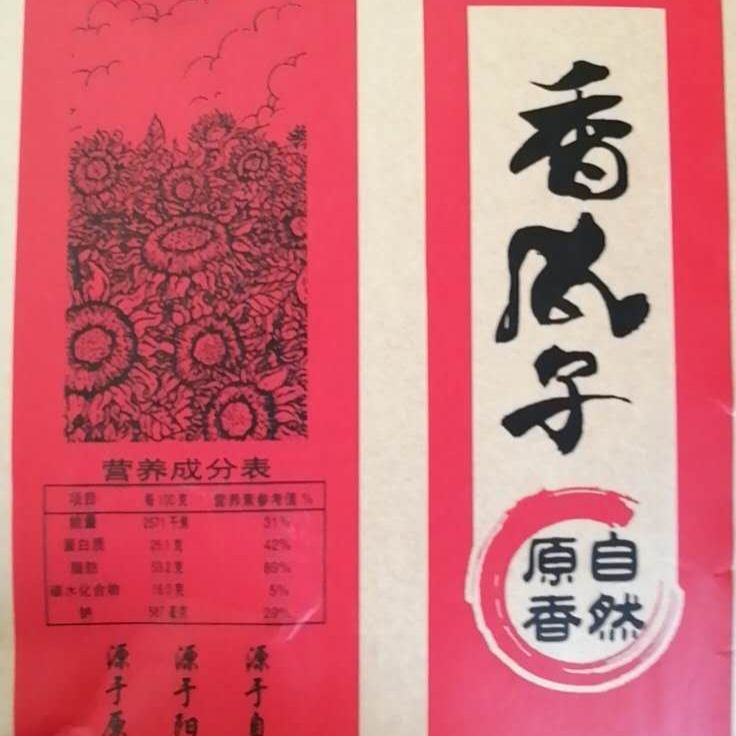 香瓜子
自然
原香
营养成分表
项目 每100克 营养素参考值%
能量 2571千焦 31%
蛋白质 25.1克 42%
脂肪 53.2克 89%
碳水化合物 克 5%
钠 587毫克 29%
源于自
源于阳
源于原